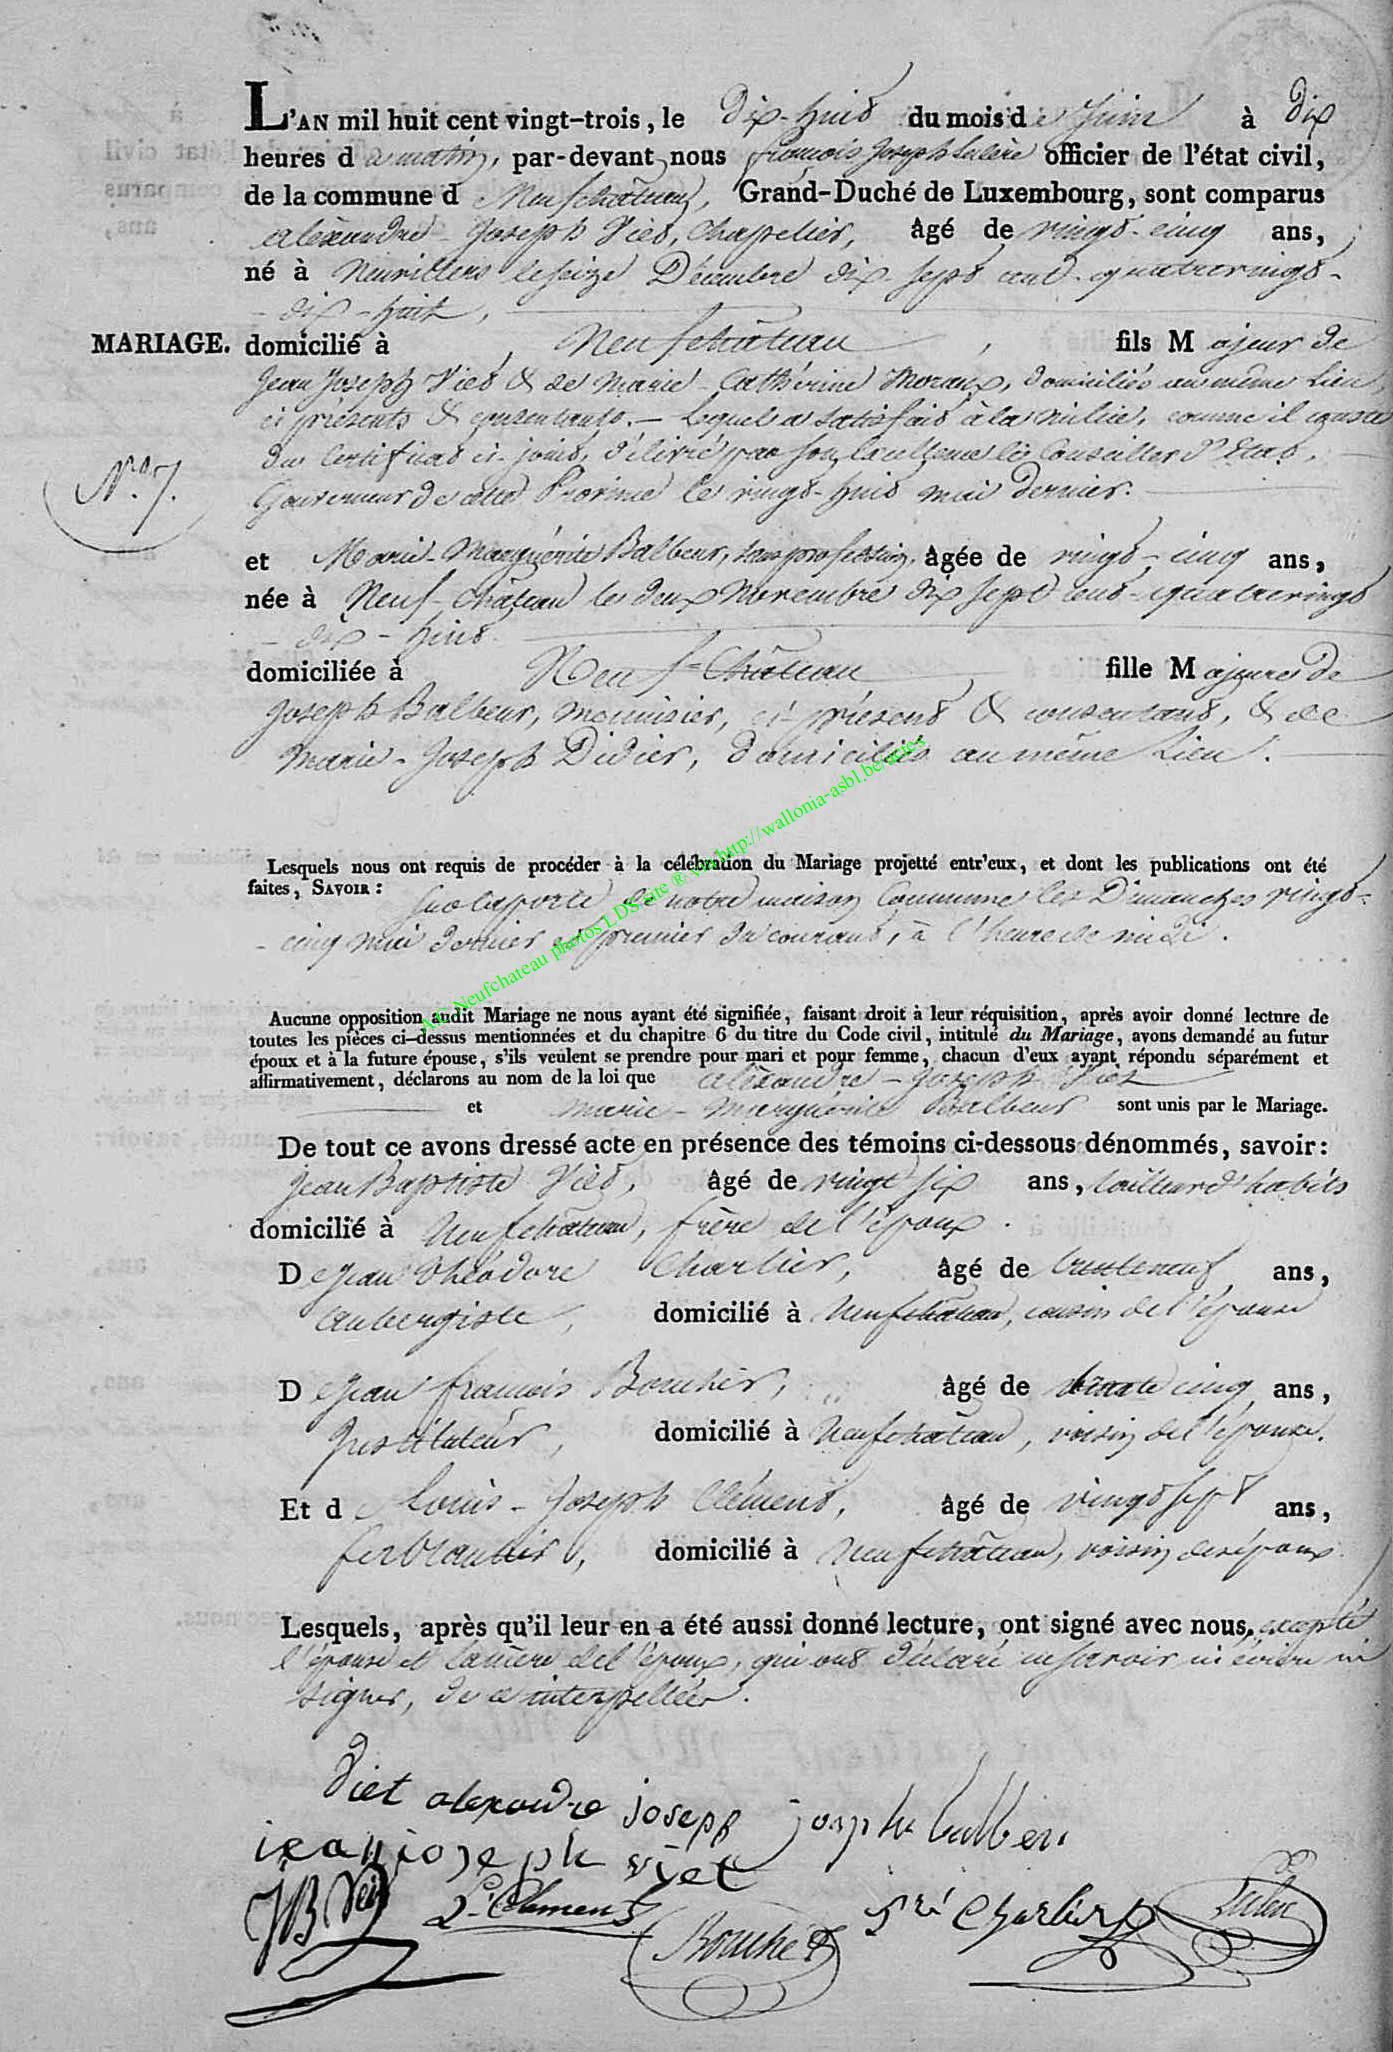 L'AN mil huit cent vingt-trois, le Dix-huit du mois de Juin à Dix
heures du matin, par-devant nous françois Joseph officier de l'état civil,
de la commune d Neufchâteau, Grand-Duché de Luxembourg, sont comparus
alèxandre-Joseph Viet, Chapelier, âgé de vingt-cinq ans,
né à le seize Décembre dix-sept cent-quatrevingt-
-dix-huit,
MARIAGE. domicilié à Neufchâteau, fils Majeur de
Jean Joseph Viet & de Marie-Cathérine Moraux, domiciliés au même Lieu,
ci présents & consentants.- Lequel a satisfait à la milice, comme il conste
du Certificat ci-joint, délivré par Son Excellence le Conseiller d'Etat,
N.° 7.
Gouverneur de cette Province le vingt-huit mai dernier.
et Marie-Marguérite Balbeur, sans profession, âgée de vingt-cinq ans,
née à Neuf-Château le deux Novembre dix sept cent-quatrevingt
-dix-huit
domiciliée à Neuf-Château fille Majeure de
Joseph Balbeur, menuisier, ci-présent & consentant, & de
Marie-Joseph Didier, domiciliés au même Lieu.
Lesquels nous ont requis de procéder à la célébration du Mariage projetté entr'eux, et dont les publications ont été
faites, SAVOIR :
Sur la porte de notre maison Commune les Dimanches vingt-
-cinq mai dernier et premier du courant, à l'heure de midi.
A.C. Neufchateau photos LDS site ® via http://wallonia-asbl.be/actes
Aucune opposition audit Mariage ne nous ayant été signifiée, faisant droit à leur réquisition, après avoir donné lecture de
toutes les pièces ci-dessus mentionnées et du chapitre 6 du titre du Code civil, intitulé du Mariage, avons demandé au futur
époux et à la future épouse, s'ils veulent se prendre pour mari et pour femme, chacun d'eux ayant répondu séparément et
affirmativement, déclarons au nom de la loi que alèxandre-Joseph Viet
et marie-Marguérite Balbeur sont unis par le Mariage.
De tout ce avons dressé acte en présence des témoins ci-dessous dénommés, savoir:
Jean Baptiste Viet, âgé de vingt six ans, tailleur d'habits
domicilié à Neufchâteau, frère de l'époux.
De Jean Théodore Charlier, âgé de trente neuf ans,
aubergiste, domicilié à Neufchâteau, cousin de l'épouse
De Jean françois Bouchér, âgé de trente cinq ans,
Instituteur, domicilié à Neufchâteau, voisin de l'épouse.
Et de Louis-Joseph Clément, âgé de vingt sept ans,
ferblantier, domicilié à Neufchâteau, voisin des époux.
Lesquels, après qu'il leur en a été aussi donné lecture, ont signé avec nous, excepté
l'épouse et la mère de l'époux, qui ont déclaré ne savoir ni écrire ni
signer, de ce interpellées.
Viet alexandre joseph joseph balbeur
jean joseph viet
JB Viet L. Clement Bouchér Charlier